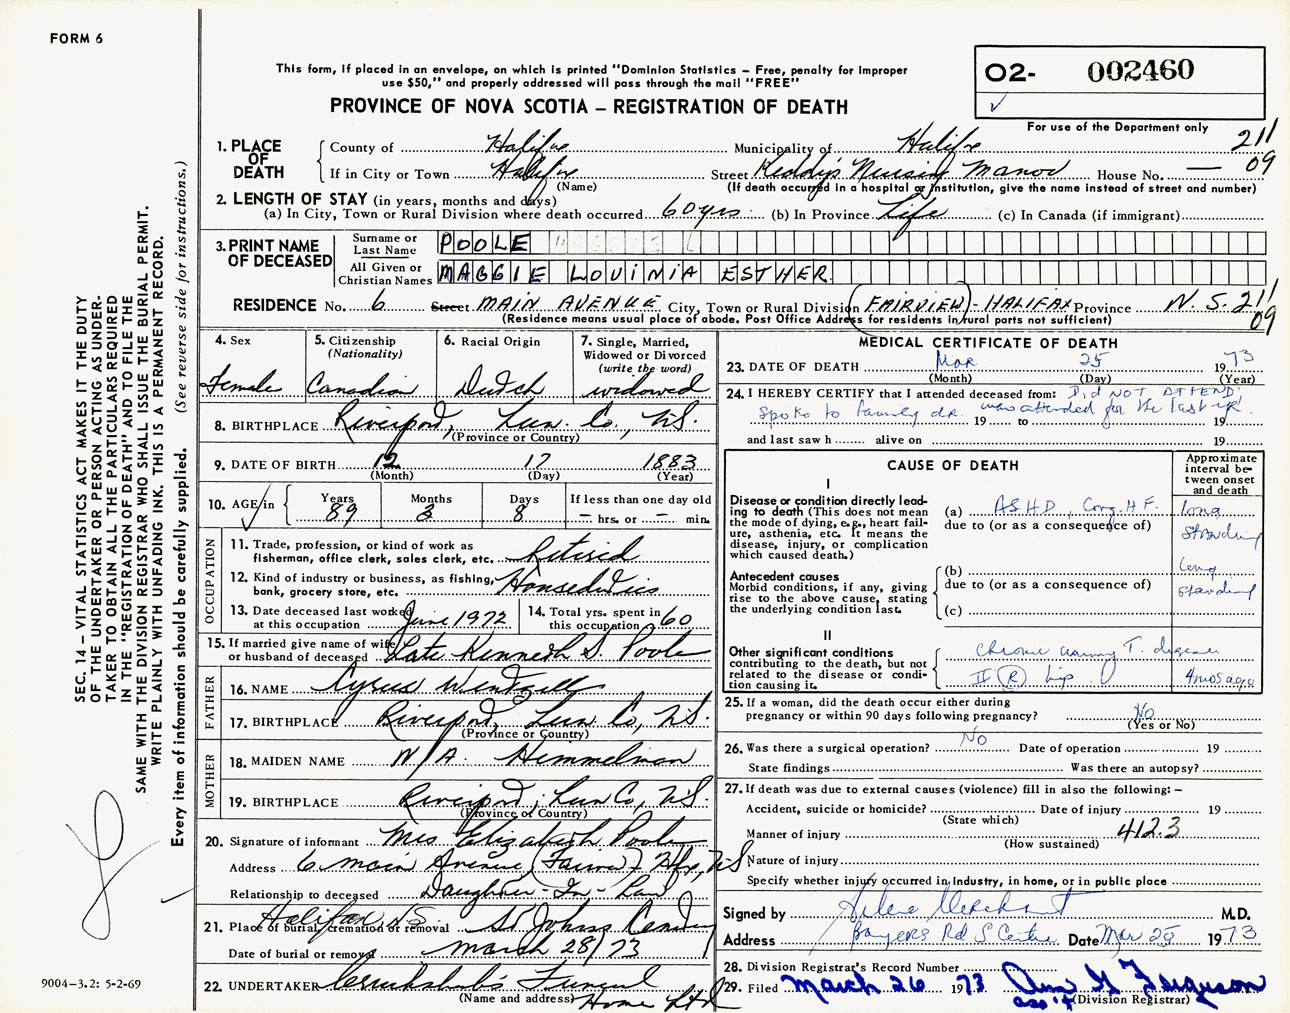 FORM 6
This form, if placed in an envelope, on which is printed "Dominion Statistics – Free, penalty for improper
use $50," and properly addressed will pass through the mail "FREE"
PROVINCE OF NOVA SCOTIA – REGISTRATION OF DEATH
O2- 002460
For use of the Department only
211
09
1. PLACE OF DEATH
County of Halifax Municipality of Halifax
If in City or Town Halifax Street Keddy's Nursing Manor House No. —
(Name) (If death occurred in a hospital or institution, give the name instead of street and number)
2. LENGTH OF STAY (in years, months and days)
(a) In City, Town or Rural Division where death occurred 60 yrs (b) In Province Life (c) In Canada (if immigrant)
3. PRINT NAME OF DECEASED
Surname or Last Name POOLE
All Given or Christian Names MAGGIE LOUINIA ESTHER
RESIDENCE No. 6 Street MAIN AVENUE City, Town or Rural Division (FAIRVIEW) - HALIFAX Province N.S. 211
09
(Residence means usual place of abode. Post Office Address for residents in rural parts not sufficient)
4. Sex
Female
5. Citizenship
(Nationality)
Canadian
6. Racial Origin
Dutch
7. Single, Married,
Widowed or Divorced
(write the word)
widowed
8. BIRTHPLACE Riverport, Lun. Co., N.S.
(Province or Country)
9. DATE OF BIRTH 12 17 1883
(Month) (Day) (Year)
10. AGE in
Years 89
Months 3
Days 8
If less than one day old
– hrs. or – min.
OCCUPATION
11. Trade, profession, or kind of work as
fisherman, office clerk, sales clerk, etc. Retired
12. Kind of industry or business, as fishing,
bank, grocery store, etc. Housedutics
13. Date deceased last worked
at this occupation June 1972
14. Total yrs. spent in
this occupation 60
15. If married give name of wife
or husband of deceased Late Kenneth S. Poole
FATHER
16. NAME Cyrus Wentzell
17. BIRTHPLACE Riverport, Lun Co, N.S.
(Province or Country)
MOTHER
18. MAIDEN NAME N/A. Himmelman
19. BIRTHPLACE Riverport, Lun Co, N.S.
(Province or Country)
20. Signature of informant Mrs Elizabeth Poole
Address 6 main Avenue (Fairview) Hfx, N S
Relationship to deceased Daughter-In-Law
21. Place of burial, cremation or removal Halifax N.S. St Johns Cemetery
Date of burial or removal March 28/73
22. UNDERTAKER Cruikshank's Funeral
(Name and address) Home Ltd
MEDICAL CERTIFICATE OF DEATH
23. DATE OF DEATH Mar 25 1973
(Month) (Day) (Year)
24. I HEREBY CERTIFY that I attended deceased from: Did NOT ATTEND
Spoke to family dr. was attended for the last yr. 19 to 19
and last saw h alive on 19
CAUSE OF DEATH
Approximate
interval be-
tween onset
and death
I
Disease or condition directly lead-
ing to death (This does not mean
the mode of dying, e.g., heart fail-
ure, asthenia, etc. It means the
disease, injury, or complication
which caused death.)
(a) ASHD, Cong. H.F.
due to (or as a consequence of)
long
standing
Antecedent causes
Morbid conditions, if any, giving
rise to the above cause, stating
the underlying condition last.
(b)
due to (or as a consequence of)
(c)
long
standing
II
Other significant conditions
contributing to the death, but not
related to the disease or condi-
tion causing it.
Chronic T. disease
# (R) hip
4 mos ago
25. If a woman, did the death occur either during
pregnancy or within 90 days following pregnancy? No
(Yes or No)
26. Was there a surgical operation? No Date of operation 19
State findings Was there an autopsy?
27. If death was due to external causes (violence) fill in also the following: –
Accident, suicide or homicide? Date of injury 19
(State which)
Manner of injury 412.3
(How sustained)
Nature of injury
Specify whether injury occurred in industry, in home, or in public place
Signed by Arlene Merchant M.D.
Address Bayers Rd S Centre Date Mar 25 1973
28. Division Registrar's Record Number
29. Filed March 26 1973 Ann G Ferguson
ass't (Division Registrar)
SEC. 14 – VITAL STATISTICS ACT MAKES IT THE DUTY
OF THE UNDERTAKER OR PERSON ACTING AS UNDER-
TAKER TO OBTAIN ALL THE PARTICULARS REQUIRED
IN THE "REGISTRATION OF DEATH" AND TO FILE THE
SAME WITH THE DIVISION REGISTRAR WHO SHALL ISSUE THE BURIAL PERMIT.
WRITE PLAINLY WITH UNFADING INK. THIS IS A PERMANENT RECORD.
Every item of information should be carefully supplied. (See reverse side for instructions.)
9004-3.2: 5-2-69